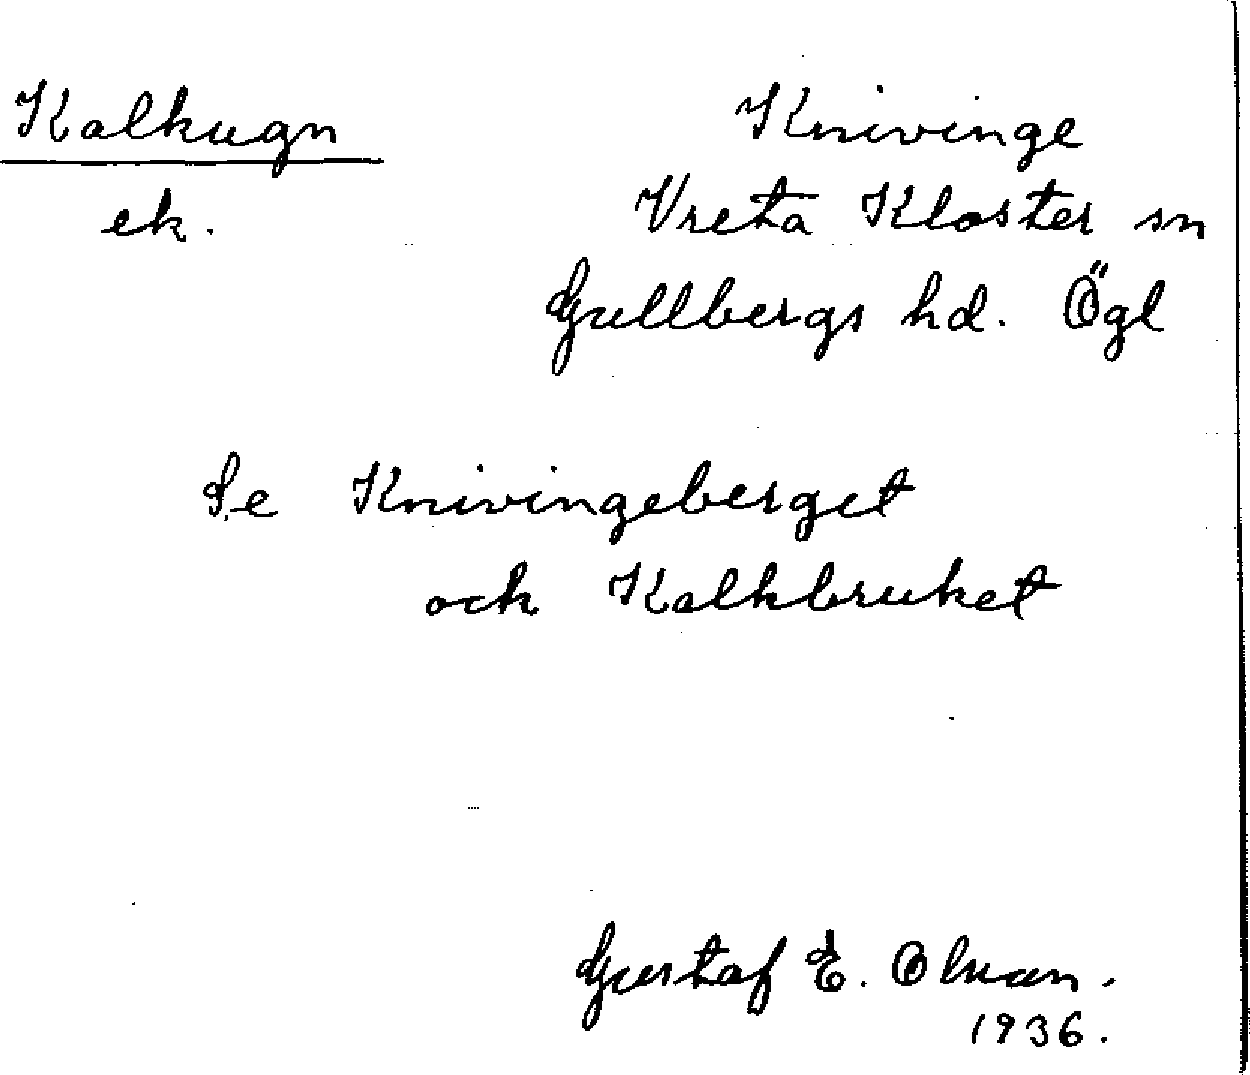 Kalkugn
ek.
Knivinge
Vreta Kloster sn
Gullbergs hd. Ögl
Se Knivingeberget
och Kalkbruket
Gustaf E.
1936.